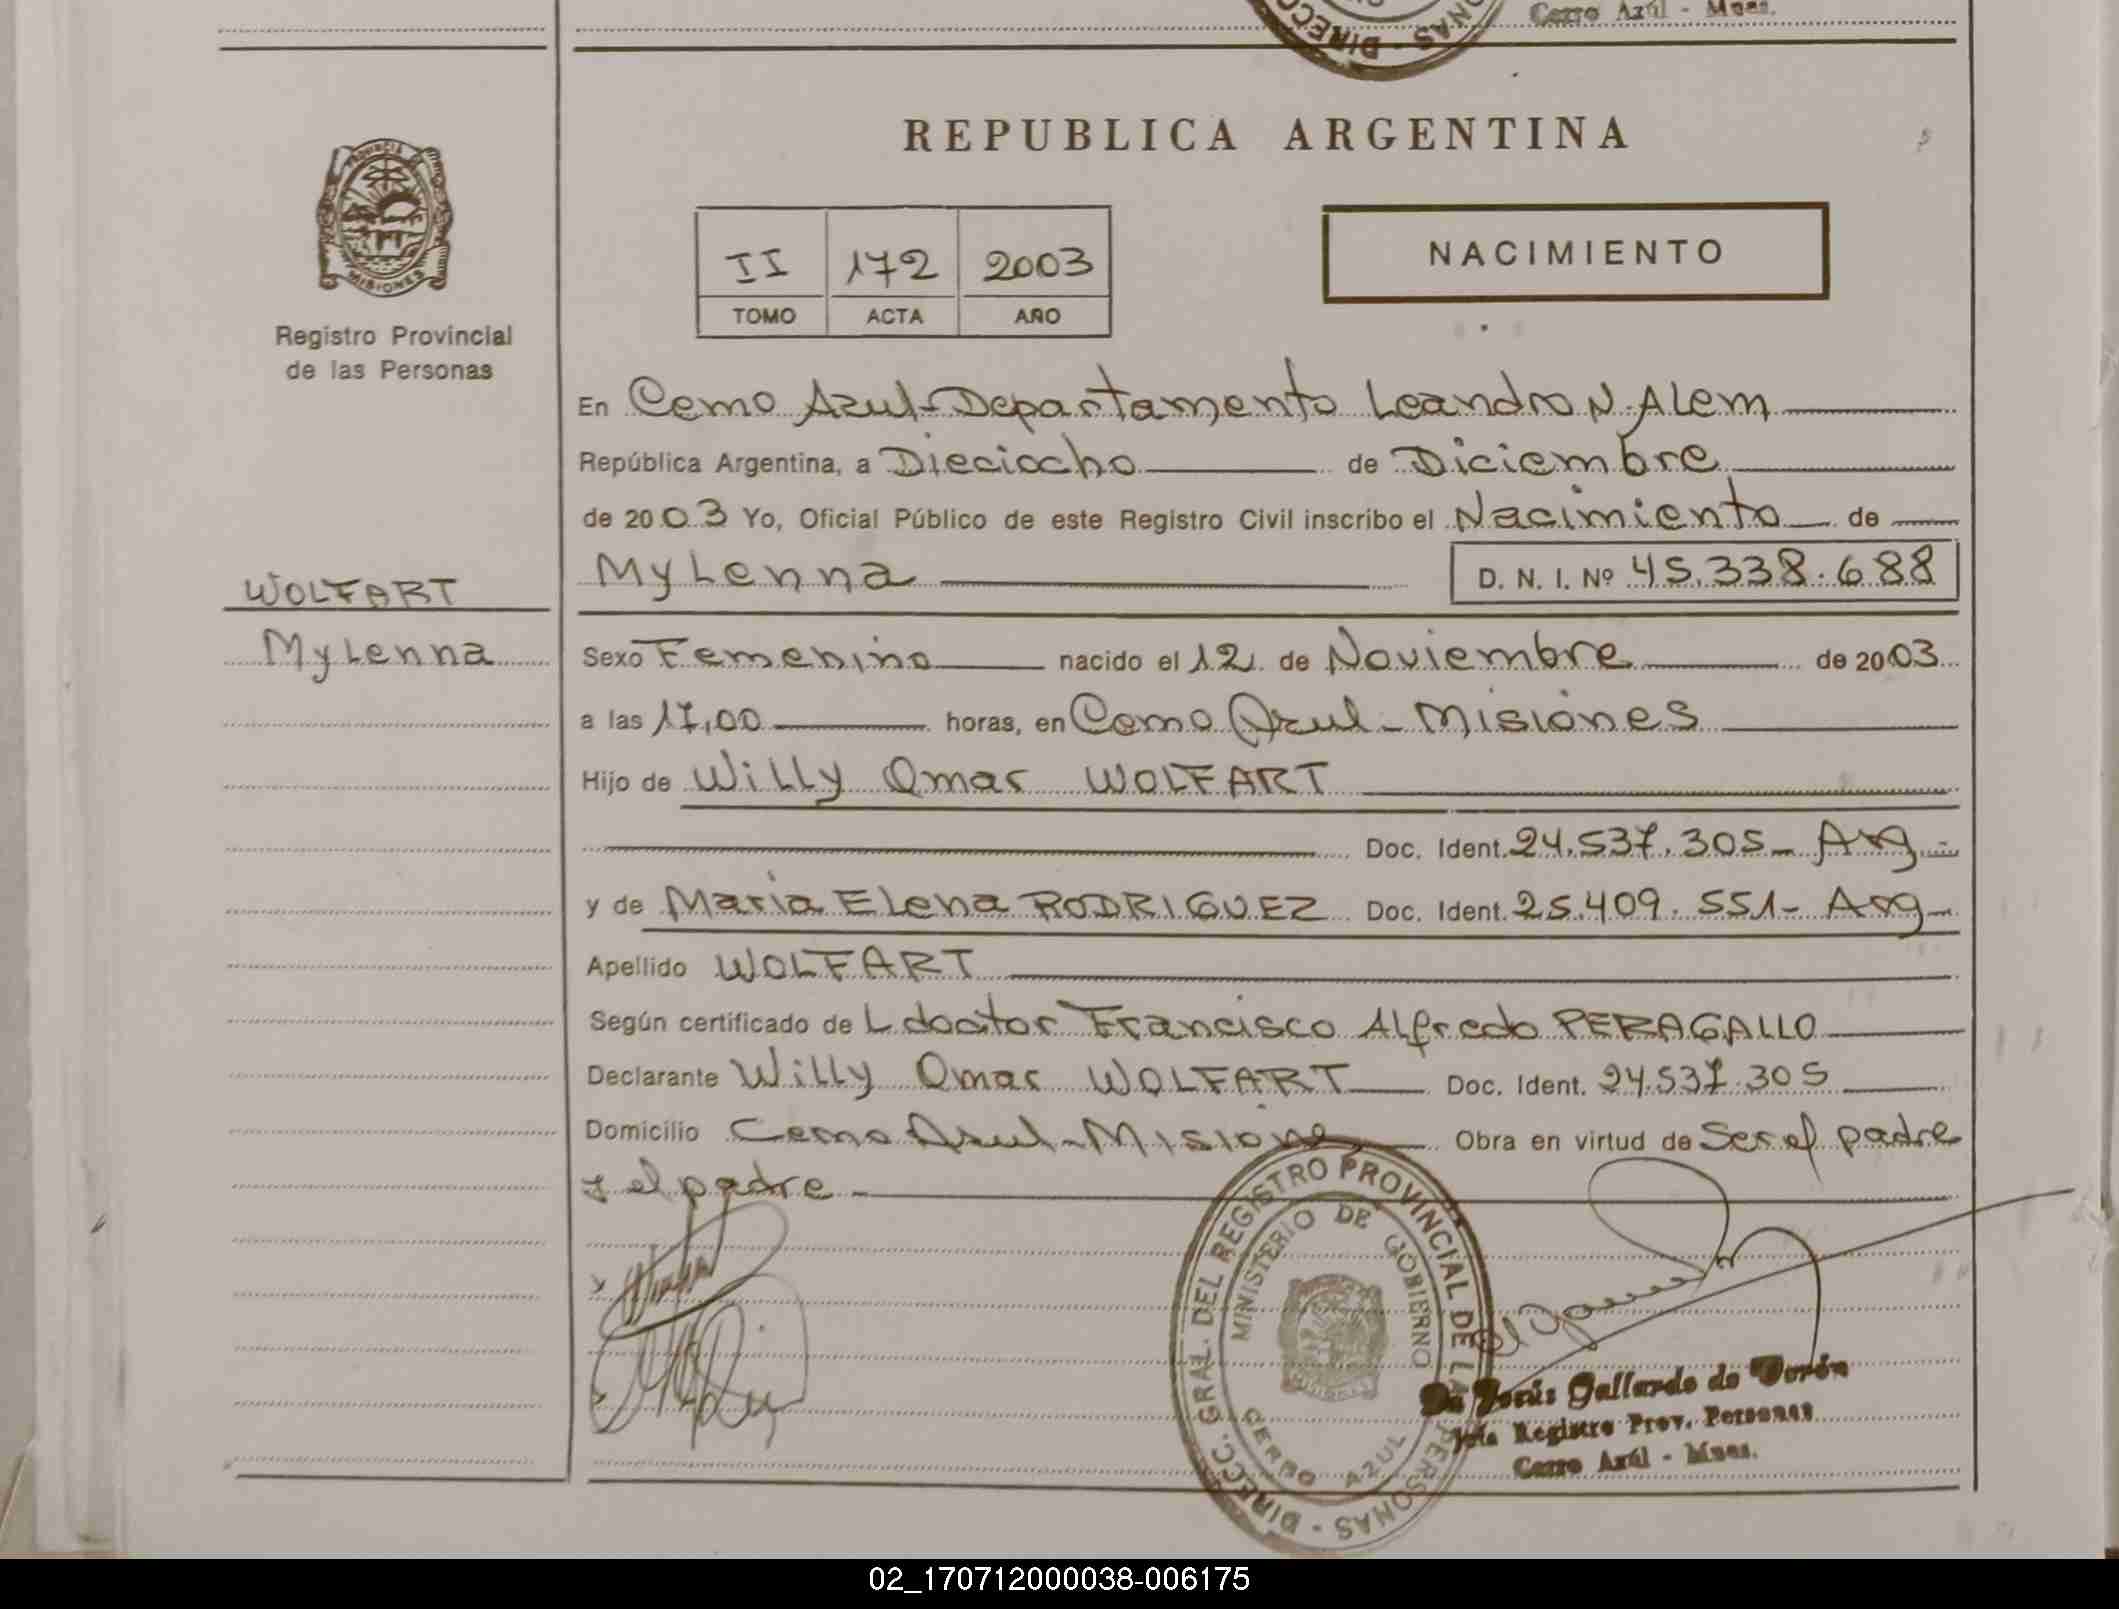 Cerro Azúl - Mnes.
REPUBLICA ARGENTINA
PROVINCIA DE
MISIONES
Registro Provincial
de las Personas
II 172 2003
TOMO ACTA AÑO
NACIMIENTO
En Cerro Azul - Departamento Leandro N. Alem
República Argentina, a Dieciocho de Diciembre
de 2003 Yo, Oficial Público de este Registro Civil inscribo el Nacimiento de
Mylenna D. N. I. Nº 45.338.688
WOLFART
Mylenna
Sexo Femenino nacido el 12 de Noviembre de 2003
a las 17,00 horas, en Cerro Azul - Misiones
Hijo de Willy Omar WOLFART
Doc. Ident. 24.537.305 - Arg
y de Maria Elena RODRIGUEZ Doc. Ident. 25.409.551 - Arg
Apellido WOLFART
Según certificado de L doctor Francisco Alfredo PERAGALLO
Declarante Willy Omar WOLFART Doc. Ident. 24.537.305
Domicilio Cerro Azul - Misiones Obra en virtud de Ser el padre
y el padre
DIRECC. GRAL. DEL REGISTRO PROVINCIAL DE LAS PERSONAS
MINISTERIO DE GOBIERNO
CERRO AZUL
Jesús Gallardo de
Jefa Registro Prov. Personas
Cerro Azúl - Mnes.
02_170712000038-006175